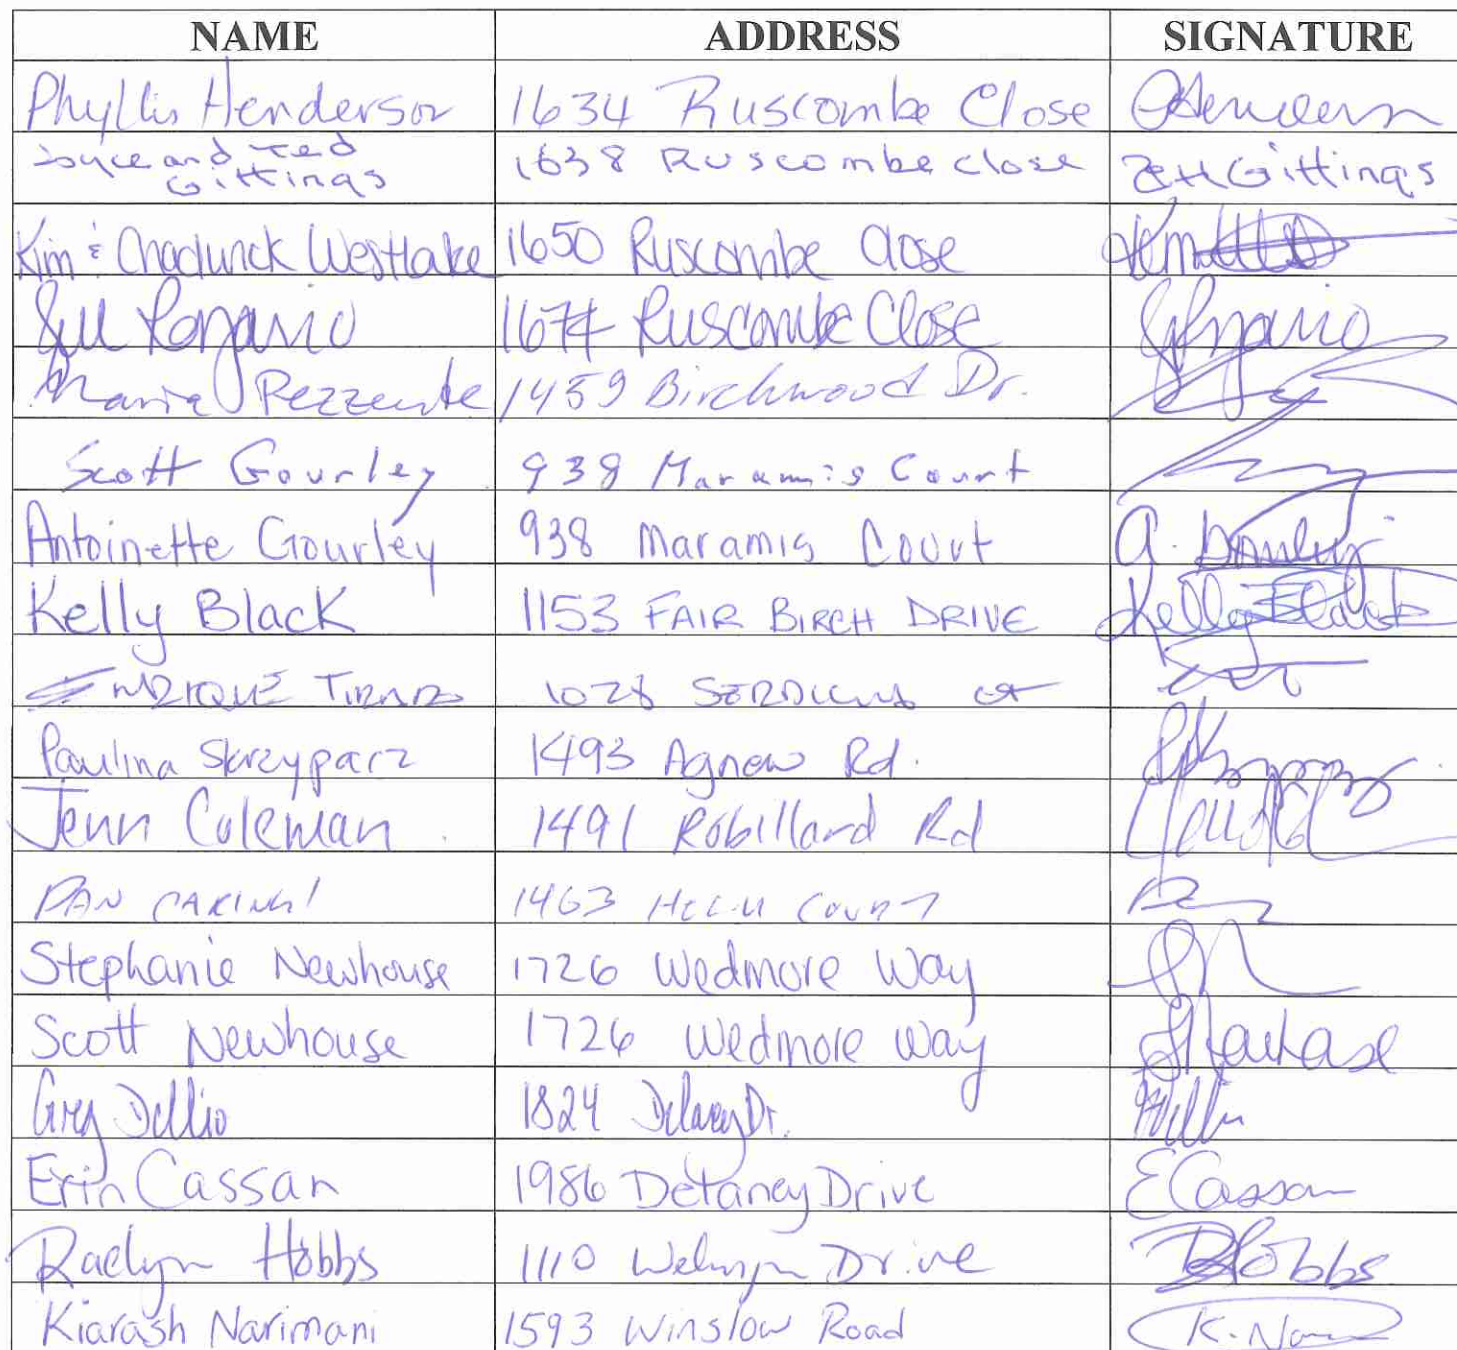 NAME ADDRESS SIGNATURE
Phyllis Henderson 1634 Ruscombe Close
Joyce and Ted
Gittings 1638 Ruscombe close Gittings
Kim & Chadwick Westlake 1650 Ruscombe Close
Jill Rozario 1674 Ruscombe Close
Maria Pezzente 1459 Birchwood Dr.
Scott Gourley 938 Maramis Court
Antoinette Gourley 938 Maramis Court A. Gourley
Kelly Black 1153 FAIR BIRCH DRIVE Kelly Black
ENRIQUE 1028 CT
Paulina Skrzyparz 1493 Agnew Rd.
Jenn Coleman 1491 Robillard Rd
DAN 1463 COURT
Stephanie Newhouse 1726 Wedmore Way
Scott Newhouse 1726 Wedmore Way
Greg Dellio 1824 Delaney Dr.
Erin Cassan 1986 Delaney Drive E Cassan
Raelyn Hobbs 1110 Welwyn Drive R Hobbs
Kiarash Narimani 1593 Winslow Road K. Nar